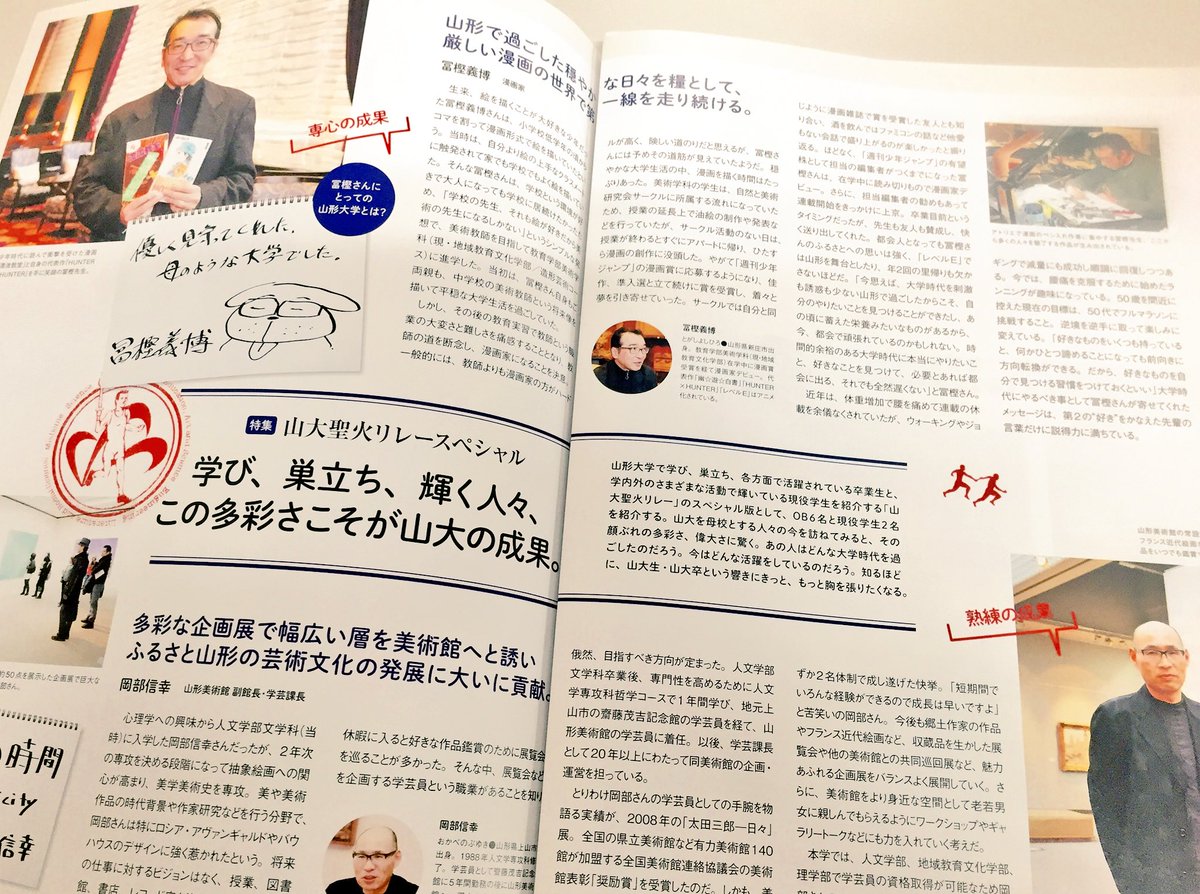 山形で過ごした穏やか
厳しい漫画の世界で第
な日々を糧として、
一線を走り続ける。
冨樫義博 漫画家
専心の成果
冨樫さんに
とっての
山形大学とは?
優しく見守ってくれた、
母のような大学でした。
冨樫義博
生来、絵を描くことが大好きな少年
冨樫義博さんは、小学校低学年の頃か
コマを割って漫画形式で絵を描いていた
う。当時は、自分より絵の上手なクラスメー
に触発されて家でも学校でもよく絵を描い
た。そんな冨樫さんは、学校という環境が好
きで大人になっても学校に居続けたかった
め、「学校の先生、それも絵が好きだから美
術の先生になるしかない」というシンプルな発
想で、美術教師を目指して教育学部美術学
科(現・地域教育文化学部/造形芸術コー
ス)に進学した。当初は、冨樫さん自身もご
両親も、中学校の美術教師という将来像を
描いて平穏な大学生活を過ごしていた。
しかし、その後の教育実習で教師という職
業の大変さと難しさを痛感することとなり、教
師の道を断念し、漫画家になることを決意。
一般的には、教師よりも漫画家の方がハード
ルが高く、険しい道のりだと思えるが、冨樫さ
んには予めその道筋が見えていたようだ。穏
やかな大学生活の中、漫画を描く時間はたっ
ぷりあった。美術学科の学生は、自然と美術
研究会サークルに所属する流れになっていた
ため、授業の延長上で油絵の制作や発表な
どを行っていたが、サークル活動のない日は、
授業が終わるとすぐにアパートに帰り、ひたす
ら漫画の創作に没頭した。やがて「週刊少年
ジャンプ」の漫画賞に応募するようになり、佳
作、準入選と立て続けに賞を受賞し、着々と
夢を引き寄せていった。サークルでは自分と同
冨樫義博
とがしよしひろ●山形県新庄市出
身。教育学部美術学科(現・地域
教育文化学部)在学中に漫画賞
受賞を経て漫画家デビュー。代
表作「幽☆遊☆白書」「HUNTER
×HUNTER」「レベルE」はアニメ
化されている。
じように漫画雑誌で賞を受賞した友人とも知
り合い、酒を飲んではファミコンの話など他愛
もない会話で盛り上がるのが楽しかったと振り
返る。ほどなく、「週刊少年ジャンプ」の有望
株として担当の編集者がつくまでになった冨
樫さんは、在学中に読み切りもので漫画家デ
ビュー。さらに、担当編集者の勧めもあって
連載開始をきっかけに上京。卒業目前という
タイミングだったが、先生も友人も賛成し、快
く送り出してくれた。都会人となっても冨樫さ
んのふるさとへの思いは強く、「レベルE」で
は山形を舞台としたり、年2回の里帰りも欠か
さないほどだ。「今思えば、大学時代を刺激
も誘惑も少ない山形で過ごしたからこそ、自
分のやりたいことを見つけることができたし、あ
の頃に蓄えた栄養みたいなものがあるから、
今、都会で頑張れているのかもしれない。時
間的余裕のある大学時代に本当にやりたいこ
と、好きなことを見つけて、必要とあれば都
会に出る、それでも全然遅くない」と冨樫さん。
近年は、体重増加で腰を痛めて連載の休
載を余儀なくされていたが、ウォーキングやジョ
ギングで減量にも成功し順調に回復しつつあ
る。今では、腰痛を克服するために始めたラ
ンニングが趣味になっている。50歳を間近に
控えた現在の目標は、50代でフルマラソンに
挑戦すること。逆境を逆手に取って楽しみに
変えている。「好きなものをいくつも持っている
と、何かひとつ諦めることになっても前向きに
方向転換ができる。だから、好きなものを自
分で見つける習慣をつけておくといい」大学時
代にやるべき事として冨樫さんが寄せてくれた
メッセージは、第2の"好き"をかなえた先輩の
言葉だけに説得力に満ちている。
特集 山大聖火リレースペシャル
学び、巣立ち、輝く人々、
この多彩さこそが山大の成果。
山形大学で学び、巣立ち、各方面で活躍されている卒業生と、
学内外のさまざまな活動で輝いている現役学生を紹介する「山
大聖火リレー」のスペシャル版として、OB6名と現役学生2名
を紹介する。山大を母校とする人々の今を訪ねてみると、その
顔ぶれの多彩さ、偉大さに驚く。あの人はどんな大学時代を過
ごしたのだろう。今はどんな活躍をしているのだろう。知るほど
に、山大生・山大卒という響きにきっと、もっと胸を張りたくなる。
多彩な企画展で幅広い層を美術館へと誘い
ふるさと山形の芸術文化の発展に大いに貢献。
岡部信幸 山形美術館 副館長・学芸課長
心理学への興味から人文学部文学科(当
時)に入学した岡部信幸さんだったが、2年次
の専攻を決める段階になって抽象絵画への関
心が高まり、美学美術史を専攻。美や美術
作品の時代背景や作家研究などを行う分野で、
岡部さんは特にロシア・アヴァンギャルドやバウ
ハウスのデザインに強く惹かれたという。将来
の仕事に対するビジョンはなく、授業、図書
休暇に入ると好きな作品鑑賞のために展覧会
を巡ることが多かった。そんな中、展覧会など
を企画する学芸員という職業があることを知り
岡部信幸
おかべのぶゆき●山形県上山市
出身。1988年人文学専攻科修
了。学芸員として齋藤茂吉記念
館に5年間勤務の後に山形美術
俄然、目指すべき方向が定まった。人文学部
文学科卒業後、専門性を高めるために人文
学専攻科哲学コースで1年間学び、地元上
山市の齋藤茂吉記念館の学芸員を経て、山
形美術館の学芸員に着任。以後、学芸課長
として20年以上にわたって同美術館の企画・
運営を担っている。
とりわけ岡部さんの学芸員としての手腕を物
語る実績が、2008年の「太田三郎―日々」
展。全国の県立美術館など有力美術館140
館が加盟する全国美術館連絡協議会の美術
館表彰「奨励賞」を受賞したのだ。しかも、美
熟練の成果
ずか2名体制で成し遂げた快挙。「短期間で
いろんな経験ができるので成長は早いですよ」
と苦笑いの岡部さん。今後も郷土作家の作品
やフランス近代絵画など、収蔵品を生かした展
覧会や他の美術館との共同巡回展など、魅力
あふれる企画展をバランスよく展開していく。さ
らに、美術館をより身近な空間として老若男
女に親しんでもらえるようにワークショップやギャ
ラリートークなどにも力を入れていく考えだ。
本学では、人文学部、地域教育文化学部、
理学部で学芸員の資格取得が可能なため岡
山形美術館の常設
フランス近代絵画
品をいつでも鑑賞
の時間
city
信幸